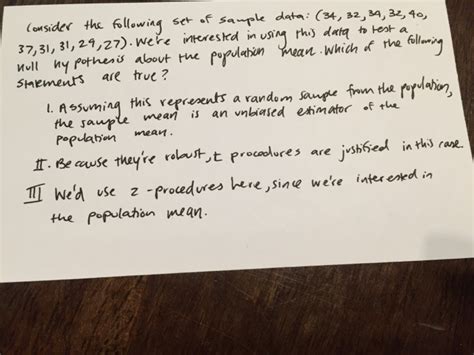 Consider the following set of sample data: (34, 32, 34, 32, 40,
37, 31, 31, 29, 27). We're interested in using this data to test a
null hypothesis about the population mean. Which of the following
statements are true?
I. Assuming this represents a random sample from the population,
the sample mean is an unbiased estimator of the
population mean.
II. Because they're robust, t procedures are justified in this case.
III We'd use z-procedures here, since we're interested in
the population mean.